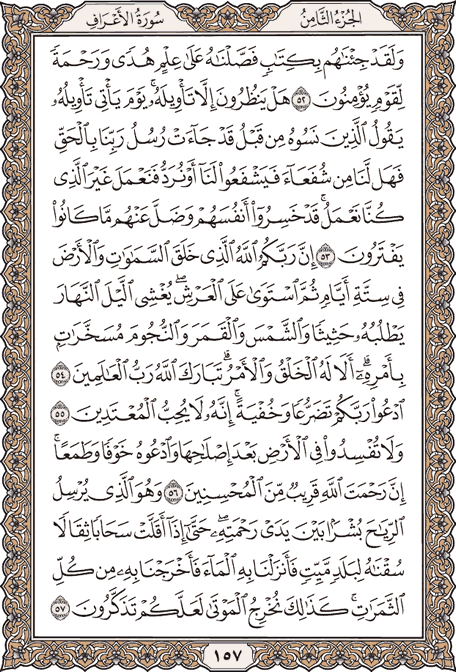 الجزء الثامن
سورة الأعراف
وَلَقَدْ جِئْنَٰهُم بِكِتَٰبٍ فَصَّلْنَٰهُ عَلَىٰ عِلْمٍ هُدًى وَرَحْمَةً
لِّقَوْمٍ يُؤْمِنُونَ ٥٢ هَلْ يَنظُرُونَ إِلَّا تَأْوِيلَهُۥ ۚ يَوْمَ يَأْتِى تَأْوِيلُهُۥ
يَقُولُ ٱلَّذِينَ نَسُوهُ مِن قَبْلُ قَدْ جَآءَتْ رُسُلُ رَبِّنَا بِٱلْحَقِّ
فَهَل لَّنَا مِن شُفَعَآءَ فَيَشْفَعُوا۟ لَنَآ أَوْ نُرَدُّ فَنَعْمَلَ غَيْرَ ٱلَّذِى
كُنَّا نَعْمَلُ ۚ قَدْ خَسِرُوٓا۟ أَنفُسَهُمْ وَضَلَّ عَنْهُم مَّا كَانُوا۟
يَفْتَرُونَ ٥٣ إِنَّ رَبَّكُمُ ٱللَّهُ ٱلَّذِى خَلَقَ ٱلسَّمَٰوَٰتِ وَٱلْأَرْضَ
فِى سِتَّةِ أَيَّامٍ ثُمَّ ٱسْتَوَىٰ عَلَى ٱلْعَرْشِ ۖ يُغْشِى ٱلَّيْلَ ٱلنَّهَارَ
يَطْلُبُهُۥ حَثِيثًا وَٱلشَّمْسَ وَٱلْقَمَرَ وَٱلنُّجُومَ مُسَخَّرَٰتٍۭ
بِأَمْرِهِۦٓ ۗ أَلَا لَهُ ٱلْخَلْقُ وَٱلْأَمْرُ ۗ تَبَارَكَ ٱللَّهُ رَبُّ ٱلْعَٰلَمِينَ ٥٤
ٱدْعُوا۟ رَبَّكُمْ تَضَرُّعًا وَخُفْيَةً ۚ إِنَّهُۥ لَا يُحِبُّ ٱلْمُعْتَدِينَ ٥٥
وَلَا تُفْسِدُوا۟ فِى ٱلْأَرْضِ بَعْدَ إِصْلَٰحِهَا وَٱدْعُوهُ خَوْفًا وَطَمَعًا ۚ
إِنَّ رَحْمَتَ ٱللَّهِ قَرِيبٌ مِّنَ ٱلْمُحْسِنِينَ ٥٦ وَهُوَ ٱلَّذِى يُرْسِلُ
ٱلرِّيَٰحَ بُشْرًۢا بَيْنَ يَدَىْ رَحْمَتِهِۦ ۖ حَتَّىٰٓ إِذَآ أَقَلَّتْ سَحَابًا ثِقَالًا
سُقْنَٰهُ لِبَلَدٍ مَّيِّتٍ فَأَنزَلْنَا بِهِ ٱلْمَآءَ فَأَخْرَجْنَا بِهِۦ مِن كُلِّ
ٱلثَّمَرَٰتِ ۚ كَذَٰلِكَ نُخْرِجُ ٱلْمَوْتَىٰ لَعَلَّكُمْ تَذَكَّرُونَ ٥٧
١٥٧